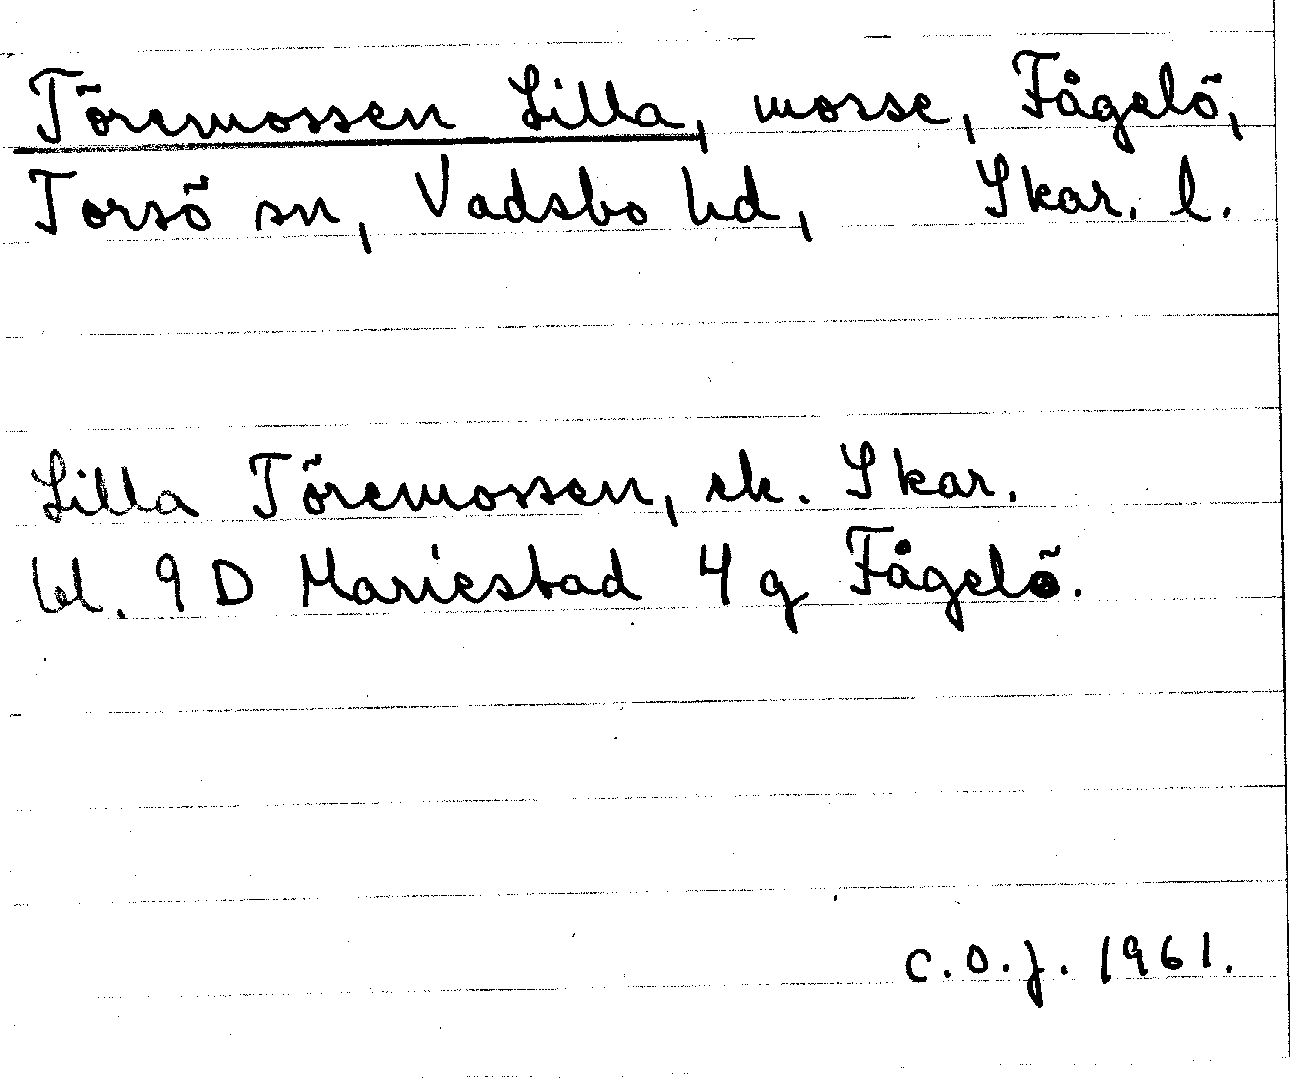 Töremossen Lilla, mosse, Fågelö,
Torsö sn, Vadsbo hd, Skar. l.
Lilla Töremossen, ek. Skar.
bl. 9 D Mariestad 4 g Fågelö.
C.O.J. 1961.